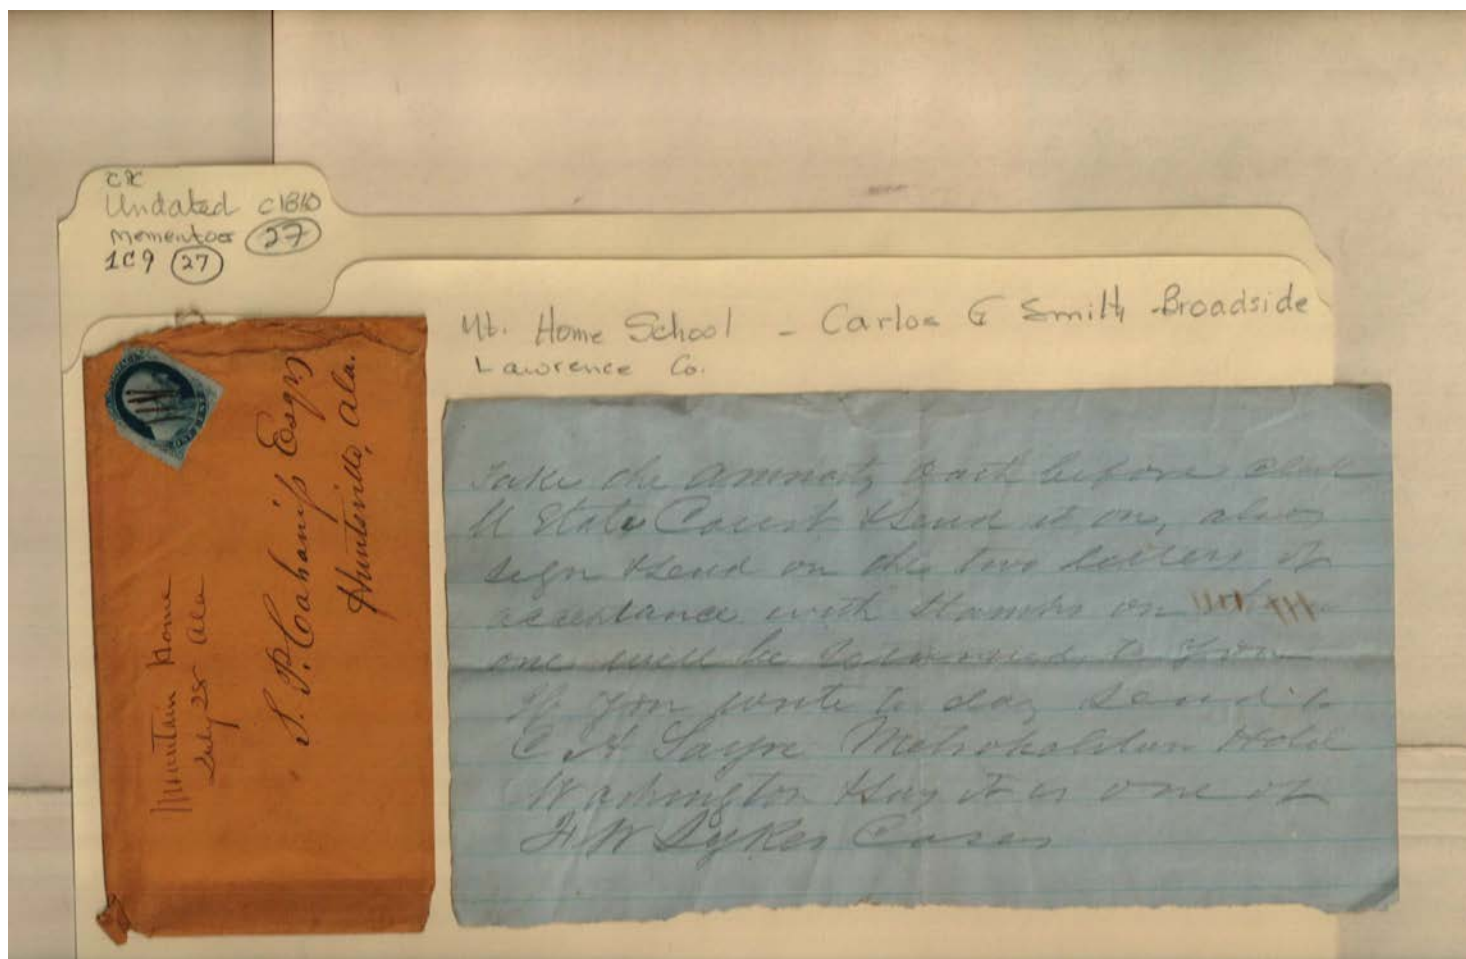 Undated c1860
Mementoes 27
1C9 27
Mt. Home School - Carlos G Smith Broadside
Lawrence Co.
ONE CENT
S. P. Cabaniss Esqr
Huntsville, Ala.
Mountain Home
July 28 Ala
Take the amnesty oath before Clerk
U State Court & send it on, also
sign & send on the two letters of
acceptance with stamps on
one will be returned to you
If you write to day send to
C H Sayre Metropolitan Hotel
Washington & say it is one of
F W Sykes Cases